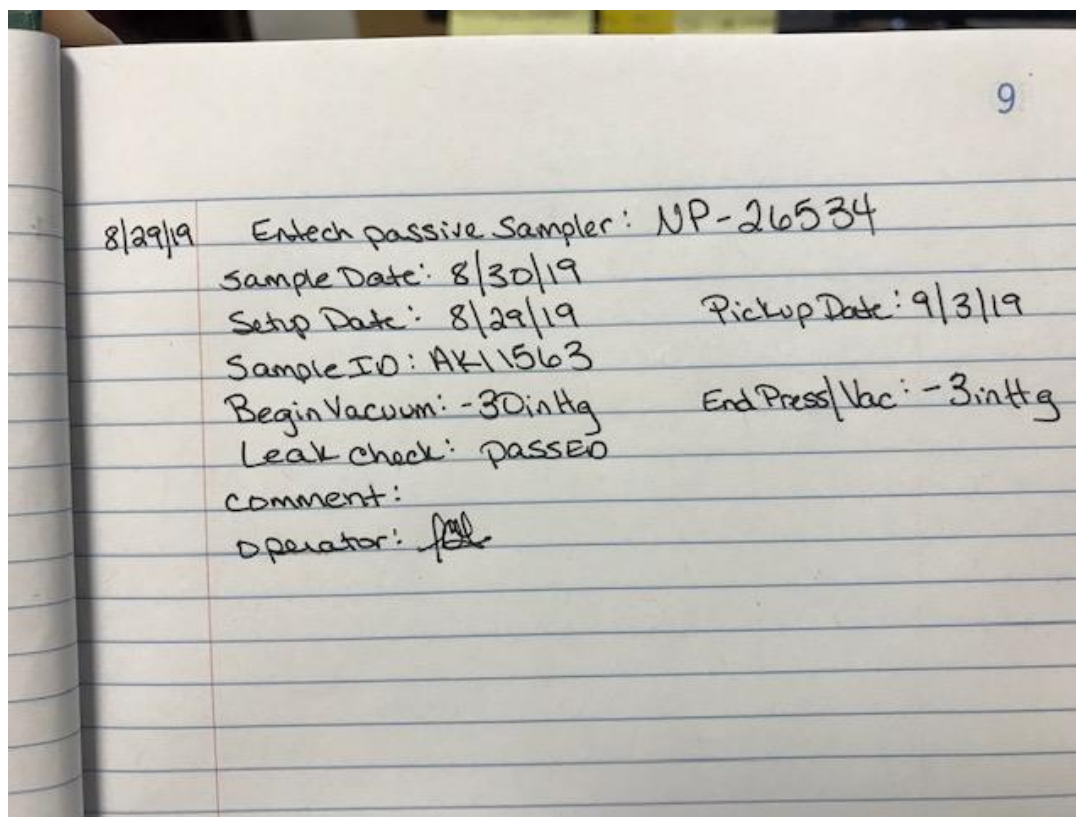 9
8/29/19 Entech passive Sampler: NP-26534
Sample Date: 8/30/19
Setup Date: 8/29/19 Pickup Date: 9/3/19
Sample ID: AK11563
Begin Vacuum: -30inHg End Press/Vac: -3inHg
Leak check: PASSED
Comment:
Operator: